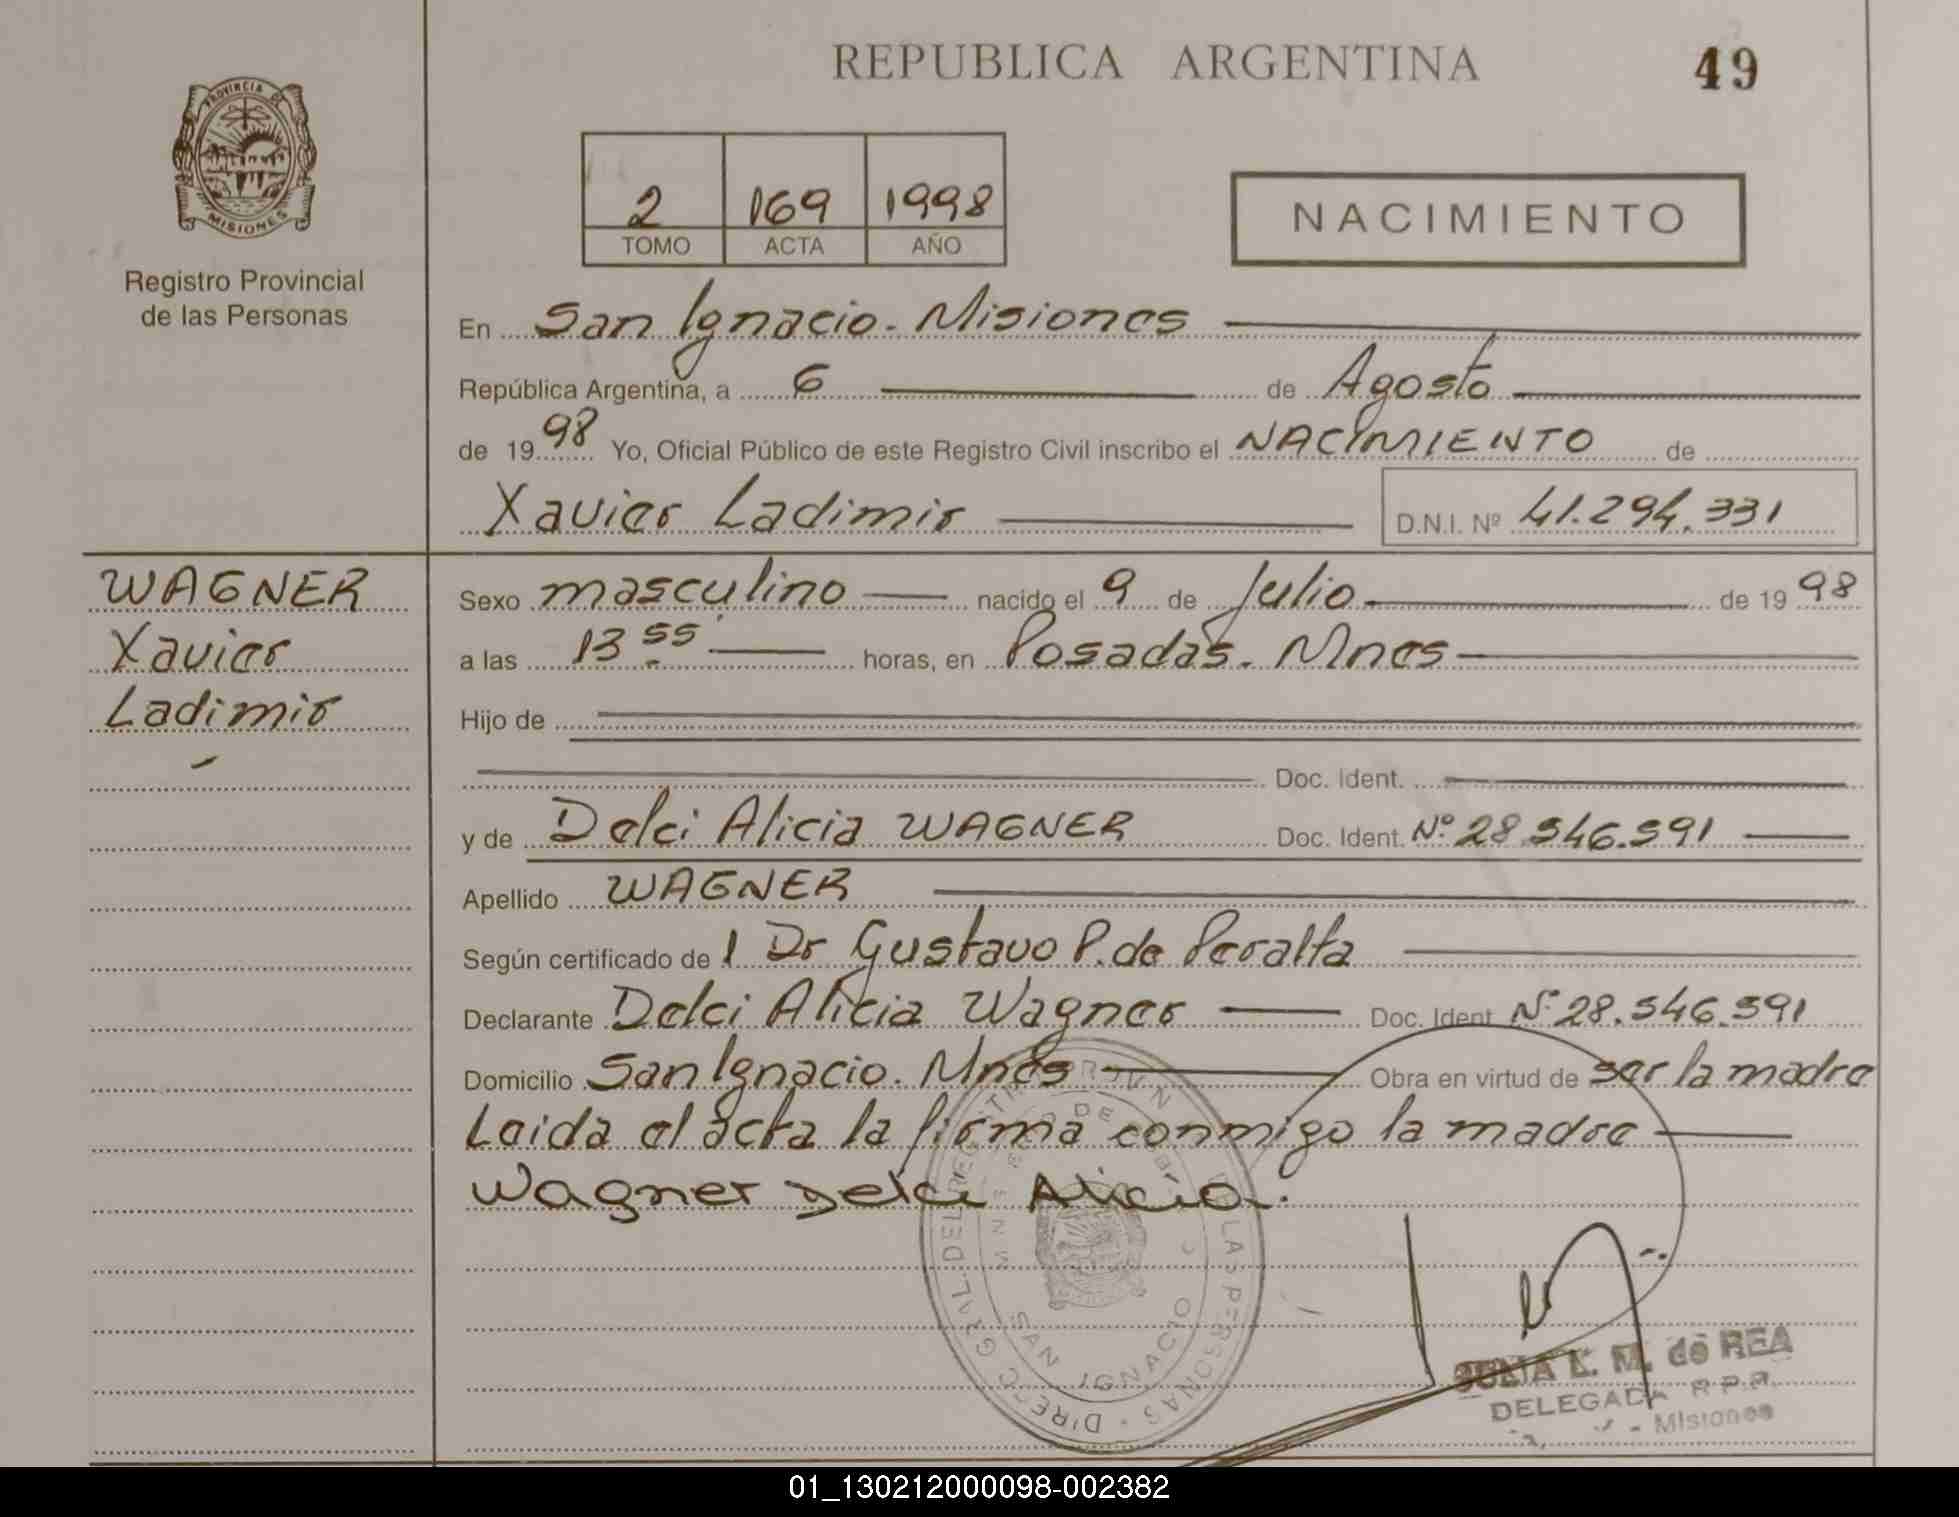 REPUBLICA ARGENTINA
49
PROVINCIA DE
MISIONES
Registro Provincial
de las Personas
2 169 1998
TOMO ACTA AÑO
NACIMIENTO
En San Ignacio. Misiones
República Argentina, a 6 de Agosto
de 1998 Yo, Oficial Público de este Registro Civil inscribo el NACIMIENTO de
Xavier Ladimir D.N.I. Nº 41.294.331
WAGNER
Xavier
Ladimir
Sexo masculino nacido el 9 de Julio de 1998
a las 13 55' horas, en Posadas. Mnes
Hijo de
Doc. Ident.
y de Delci Alicia WAGNER Doc. Ident. Nº 28.546.591
Apellido WAGNER
Según certificado de 1 Dr Gustavo P. de Peralta
Declarante Delci Alicia Wagner Doc. Ident. Nº 28.546.591
Domicilio San Ignacio. Mnes Obra en virtud de ser la madre
Leida el acta la firma conmigo la madre
Wagner Delci Alicia.
SAN IGNACIO
L. M. de REA
DELEGADA R.P.P.
Misiones
01_130212000098-002382